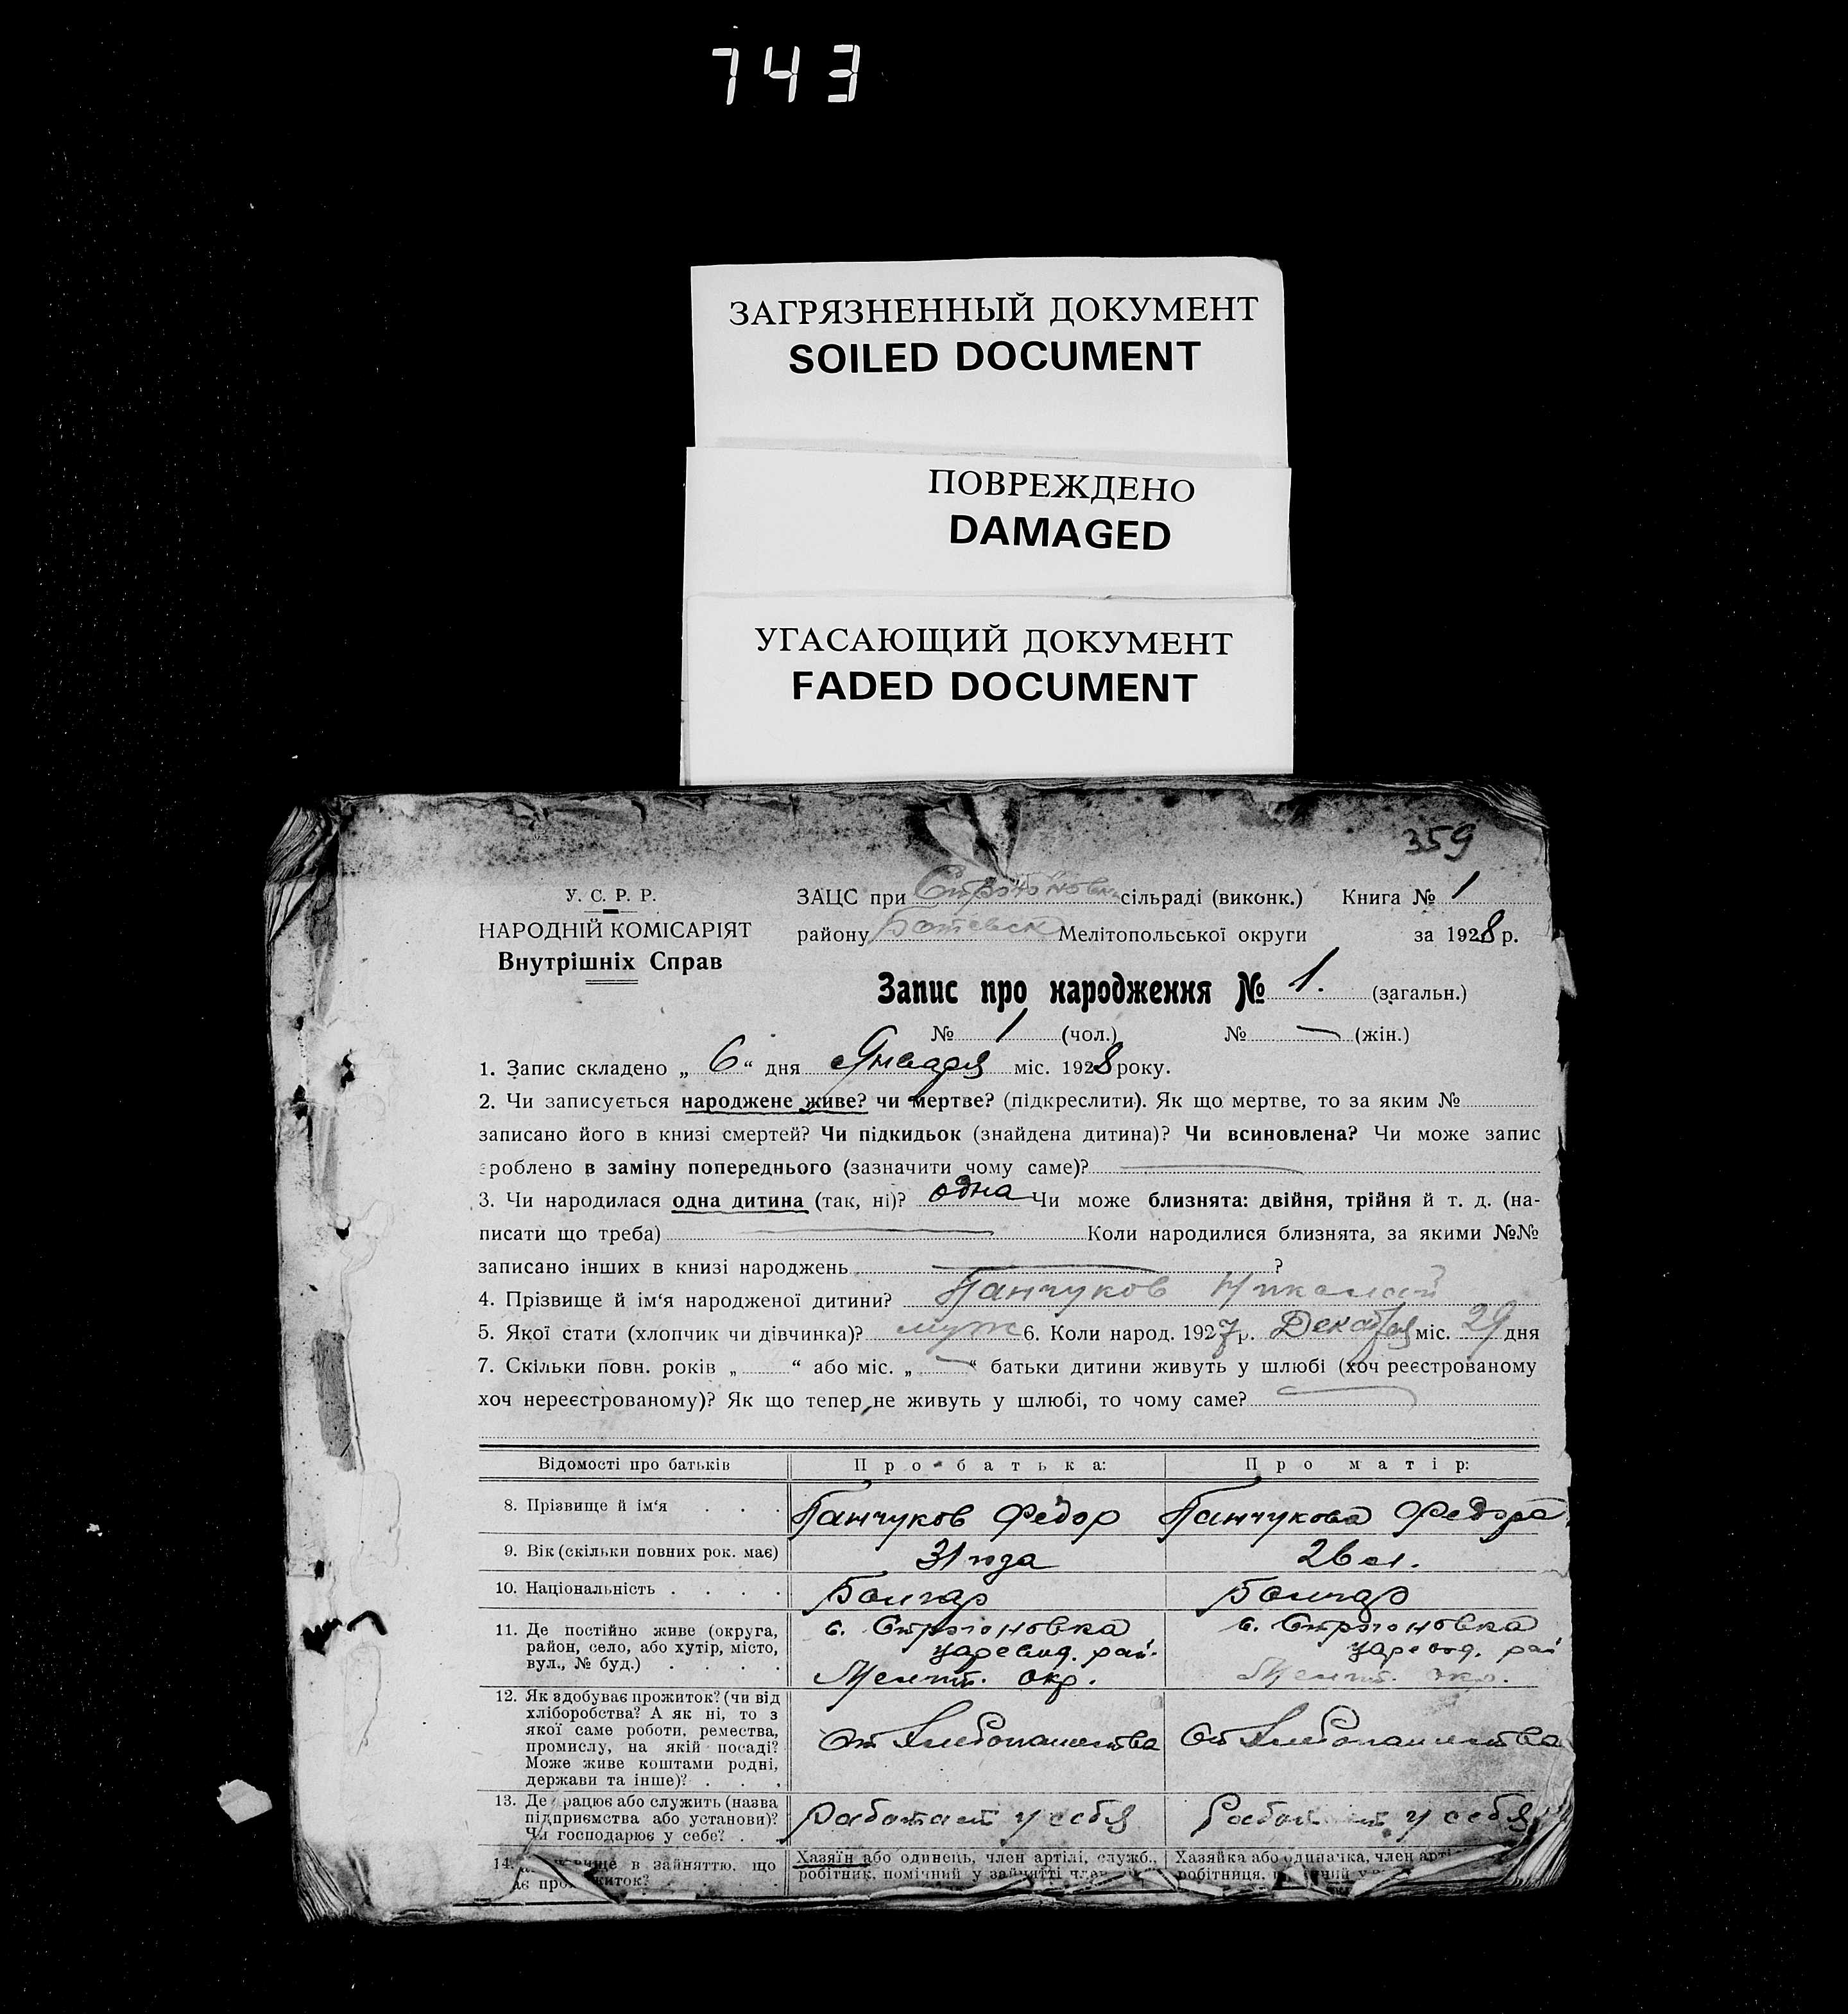 743
ЗАГРЯЗНЕННЫЙ ДОКУМЕНТ
SOILED DOCUMENT
ПОВРЕЖДЕНО
DAMAGED
УГАСАЮЩИЙ ДОКУМЕНТ
FADED DOCUMENT
359
У. С. Р. Р.
НАРОДНІЙ КОМІСАРІЯТ
Внутрішніх Справ
ЗАЦС при Строгоновк. сільраді (виконк.) Книга № 1
району Ботевск Мелітопольської округи за 1928 р.
Запис про народження № 1. (загальн.)
№ 1 (чол.) № — (жін.)
1. Запис складено „ 6 “ дня Января міс. 1928 року.
2. Чи записується народжене живе? чи мертве? (підкреслити). Як що мертве, то за яким №
записано його в книзі смертей? Чи підкидьок (знайдена дитина)? Чи всиновлена? Чи може запис
зроблено в заміну попереднього (зазначити чому саме)? —
3. Чи народилася одна дитина (так, ні)? одна Чи може близнята: двійня, трійня й т. д. (на-
писати що треба) — Коли народилися близнята, за якими №№
записано інших в книзі народжень — ?
4. Прізвище й ім‘я народженої дитини? Панчуков Николай
5. Якої стати (хлопчик чи дівчинка)? муж 6. Коли народ. 1927 р. Декабря міс. 29 дня
7. Скільки повн. років „ “ або міс. „ — “ батьки дитини живуть у шлюбі (хоч реєстрованому
хоч нереєстрованому)? Як що тепер не живуть у шлюбі, то чому саме? —
Відомості про батьків Про батька: Про матір:
8. Прізвище й ім‘я . . . Панчуков Федор Панчукова Федора
9. Вік (скільки повних рок. має) 31 года 26 л.
10. Національність . . . . Болгар Болгар
11. Де постійно живе (округа, район, село, або хутір, місто, вул., № буд.) . . . .
с. Строгоновка с. Строгоновка
царевод. рай. царевод. рай
Мелит. окр. Мелит. окр.
12. Як здобуває прожиток? (чи від
хліборобства? А як ні, то з
якої саме роботи, ремества,
промислу, на якій посаді?
Може живе коштами родні,
держави та інше)? . . .
От Хлебопашества От Хлебопашества
13. Де працює або служить (назва
підприємства або установи)?
Чи господарює у себе? . .
Работает у себя Работает у себя
14. в зайняттю, що
Хазяїн або одинець, член артілі, служб., Хазяйка або одиначка, член арті
робітник, помічний у зайнятті робітниця,